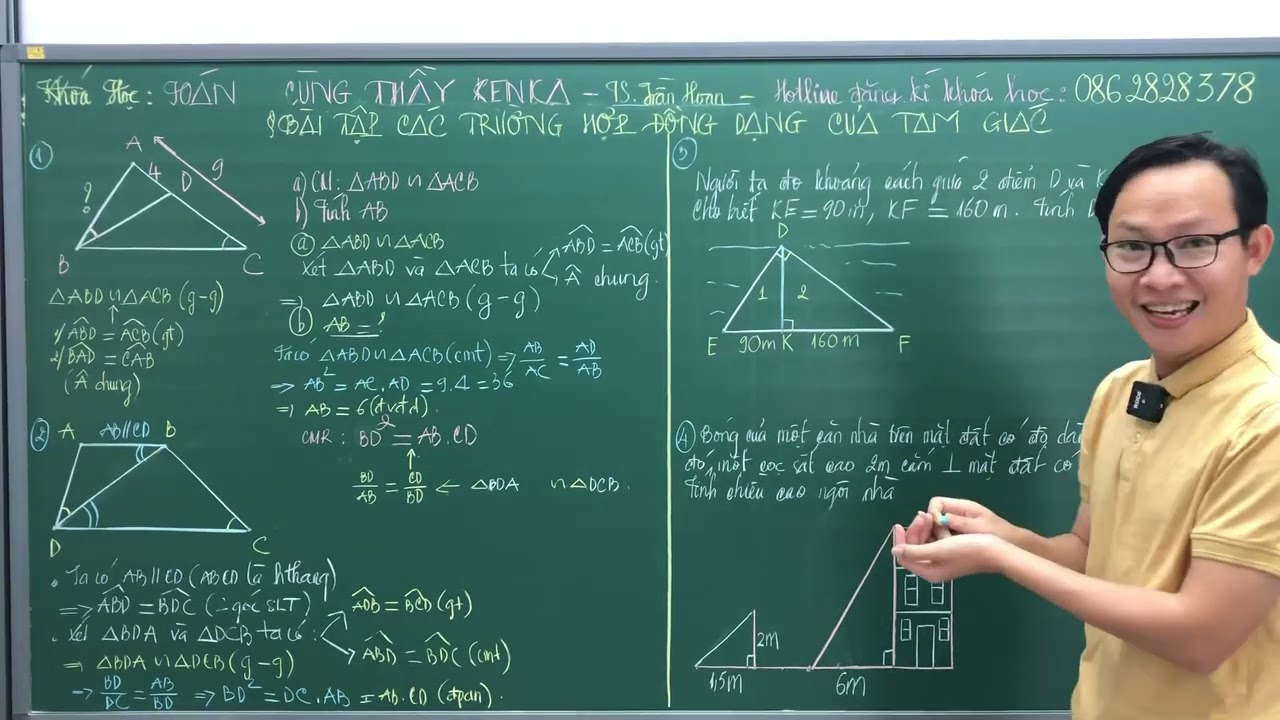 Khoá Học: TOÁN CÙNG THẦY KENKA - TS. Trần Hoan - Hotline đăng kí khoá học: 0862828378
BÀI TẬP CÁC TRƯỜNG HỢP ĐỒNG DẠNG CỦA TAM GIÁC
①
A
4
D
9
?
B
C
△ABD ∽ △ACB (g-g)
1/ ABD = ACB (gt)
2/ BAD = CAB
(Â chung)
a) CM: △ABD ∽ △ACB
b) Tính AB
ⓐ △ABD ∽ △ACB
Xét △ABD và △ACB ta có
ABD = ACB (gt)
Â chung.
=> △ABD ∽ △ACB (g-g)
ⓑ AB = ?
Ta có △ABD ∽ △ACB (cmt) => AB/AC = AD/AB
=> AB² = AC.AD = 9.4 = 36
=> AB = 6 (đvđd).
②
A
AB//CD
B
D
C
CMR: BD² = AB.CD
BD/AB = CD/BD ← △BDA ∽ △DCB.
. Ta có AB//CD (ABCD là hthang)
=> ABD = BDC (2 góc SLT)
. Xét △BDA và △DCB ta có:
ADB = BCD (gt)
ABD = BDC (cmt)
=> △BDA ∽ △DCB (g-g)
=> BD/DC = AB/BD => BD² = DC.AB = AB.CD (đpcm).
③
Người ta đo khoảng cách giữa 2 điểm D và K
Cho biết KE = 90m, KF = 160m. Tính
D
1
2
E
90m
K
160m
F
④ Bóng của một căn nhà trên mặt đất có độ dài
đó, một cọc sắt cao 2m cắm ⊥ mặt đất có
Tính chiều cao ngôi nhà
2m
1,5m
6m